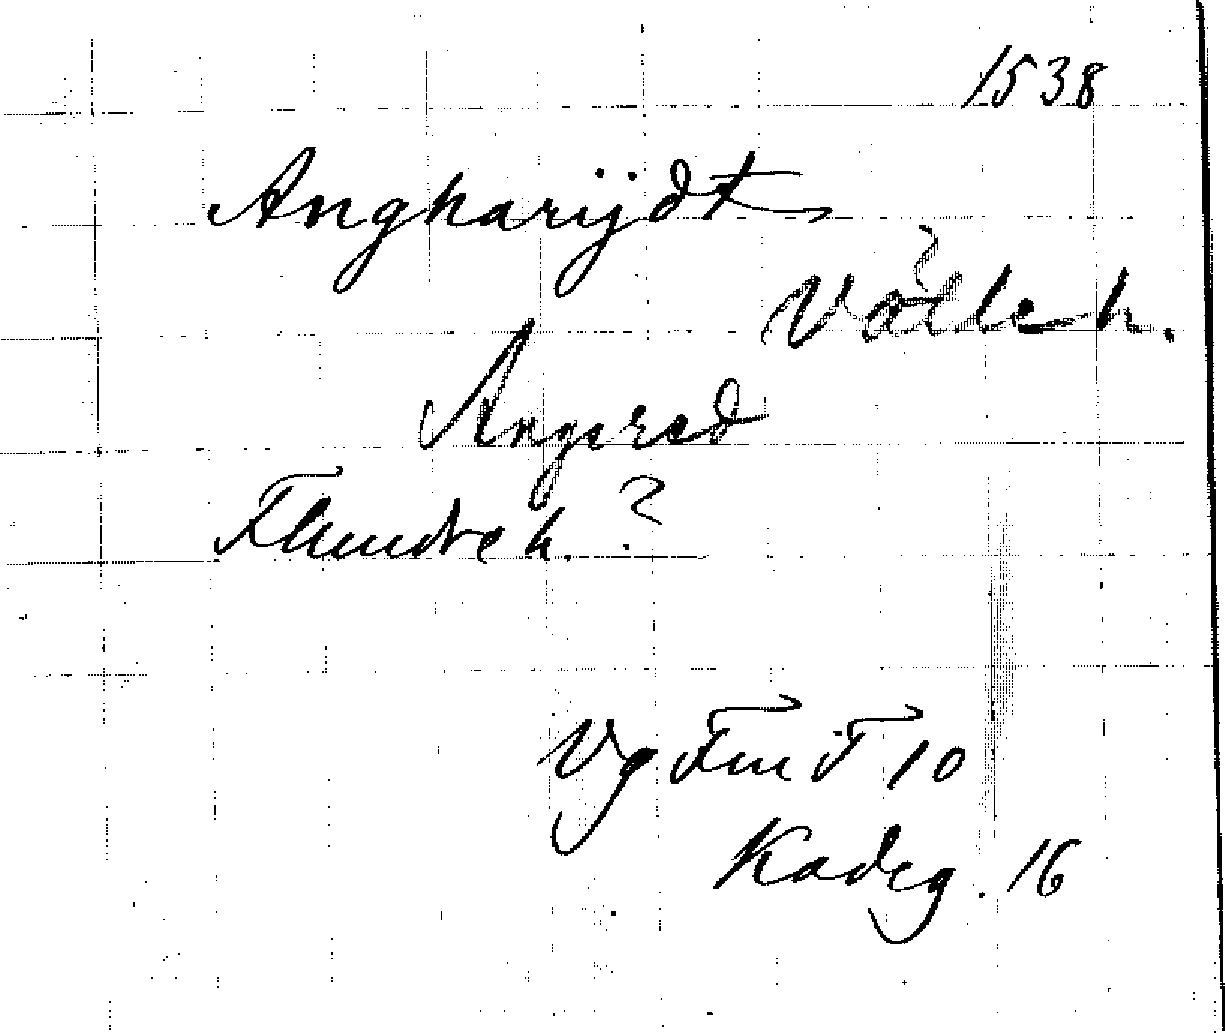 1538
Angharijdt
Välle h.
Angered
Flundre h. ?
Vg
10
Kadeg. 16